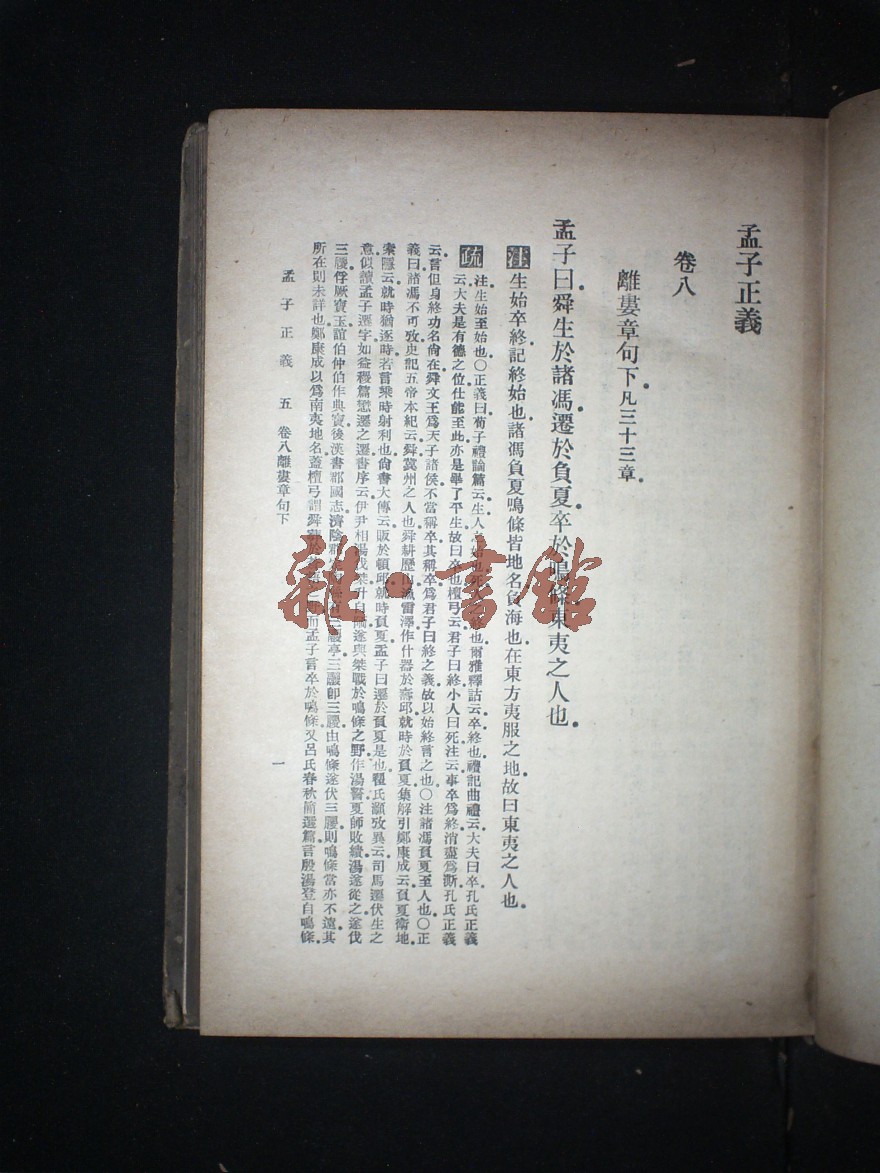 孟子正義
卷八
離婁章句下凡三十三章。
孟子曰舜生於諸馮遷於負夏卒於鳴條東夷之人也。
注 生始卒終記終始也。諸馮負夏鳴條皆地名負海也。在東方夷服之地。故曰東夷之人也。
疏 注生始至始也。○正義曰。荀子禮論篇云。生人之始也。死人之終也。爾雅釋詁云。卒終也。禮記曲禮云。大夫曰卒。孔氏正義
云。大夫是有德之位。仕能至此。亦是畢了平生。故曰卒也。檀弓云。君子曰終。小人曰死。注云。事卒爲終。消盡爲澌。孔氏正義
云。言但身終功名尙在。舜文王爲天子諸侯。不當稱卒。其稱卒。爲君子曰終之義。故以始終言之也。○注諸馮負夏至人也。○正
義曰。諸馮不可攷。史記五帝本紀云。舜冀州之人也。舜耕歷山。漁雷澤。作什器於壽邱。就時於負夏。集解引鄭康成云。負夏衞地。
索隱云。就時猶逐時。若言乘時射利也。尙書大傳云。販於頓邱。就時負夏。孟子曰遷於負夏是也。翟氏灝攷異云。司馬遷伏生之
意。似讀孟子遷字如益稷篇懋遷之遷。書序云。伊尹相湯伐桀。升自陑。遂與桀戰於鳴條之野。作湯誓。夏師敗績。湯遂從之。遂伐
三朡。俘厥寶玉。誼伯仲伯作典寶。後漢書郡國志。濟陰郡 三鬷亭。三鬷卽三朡。由鳴條遂伐三朡。則鳴條當亦不遠。其
所在則未詳也。鄭康成以爲南夷地名。蓋檀弓謂舜葬於蒼梧之野。而孟子言卒於鳴條。又呂氏春秋簡選篇。言殷湯登自鳴條。
孟子正義 五 卷八離婁章句下
一
雜·書館